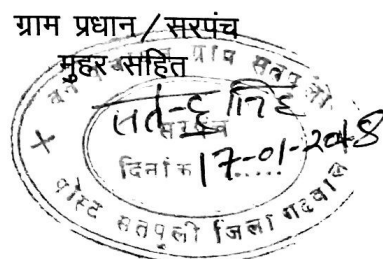 ग्राम प्रधान / सरपंच
मुहर सहित
ग्राम सतपुली
सरपंच
दिनांक 17-01-2018
पोस्ट सतपुली जिला गढवाल